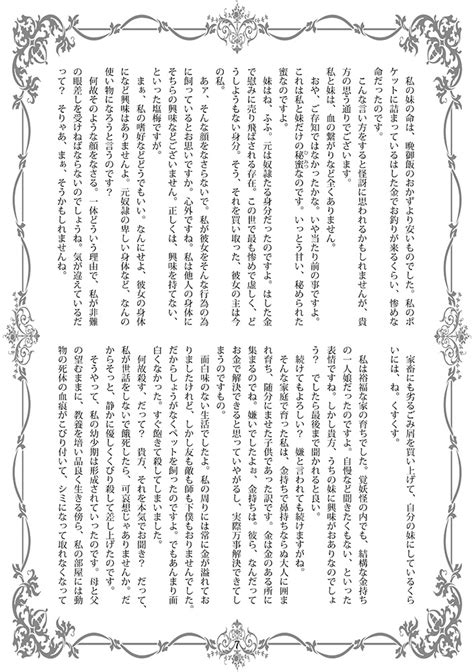 私の妹の命は、晩御飯のおかずより安いものでした。私のポ
ケットに詰まっているはした金でお釣りが来るくらい、惨めな
命だったのです。
こんな言い方をすると怪訝に思われるかもしれませんが、貴
方の思う通りでございます。
私と妹は、血の繋がりなど全くありません。
おや、ご存知ではなかったかな。いや当たり前の事ですよ。
これは私と妹だけの秘蜜なのです。いっとう甘い、秘められた
蜜なのですよ。
妹はね、ふふ。元は奴隷たる身分だったのですよ。はした金
で慰みに売り飛ばされる存在。この世で最も惨めで虚しく、ど
うしようもない身分。そう、それを買い取った、彼女の主は今
の私。
あァ、そんな顔をなさらないで。私が彼女をそんな行為の為
に飼っているとお思いですか。心外ですね。私は他人の身体に
そちらの興味などございません。正しくは、興味を持てない、
といった塩梅ですが。
まぁ、私の嗜好などどうでもいい。なんにせよ、彼女の身体
になど興味はありませんよ。元奴隷の卑しい身体など、なんの
使い物になろうと言うのです?
何故そのような顔をなさる。一体どういう理由で、私が非難
の眼差しを受けねばならないのでしょうね。気が違えているだ
って? そりゃあ、まぁ、そうかもしれませんね。
家畜にも劣るごみ屑を買い上げて、自分の妹にしているくら
いには、ね。くすくす。
私は裕福な家の育ちでした。覚妖怪の内でも、結構な金持ち
の一人娘だったのですよ。自慢など聞きたくもない、といった
表情ですね。しかし貴方、うちの妹に興味がおありなのでしょ
う? でしたら最後まで聞かれると良い。
続けてもよろしい? 嫌と言われても続けますがね。
そんな家庭で育った私は、金持ちで鼻持ちならぬ大人に囲ま
れ育ち、随分にませた子供であった訳です。金は金のある所に
集まるのでね。嫌いでしたよぉ、金持ちは。彼ら、なんだって
お金で解決できると思っていやがるし、実際万事解決できてし
まうのですもの。
面白味のない生活でしたよ。私の周りには常に金が溢れてお
りましたけれど、しかし友も敵も師も下僕もおりませんでした。
だからしょうがなくペットを飼ったのですよ。でもあんまり面
白くなかった。すぐ飽きて殺してしまいました。
何故殺す、だって? 貴方、それを本気でお聞き? だって、
私が世話をしないで餓死したら、可哀想じゃありませんか。だ
からそっと、静かに優しくくびり殺して差し上げたのです。
そうやって、私の幼少期は形成されていったのです。母と父
の望むままに、教養を培い品良く生きる傍ら、私の部屋には動
物の死体の血痕がこびり付いて、シミになって取れなくなって
7